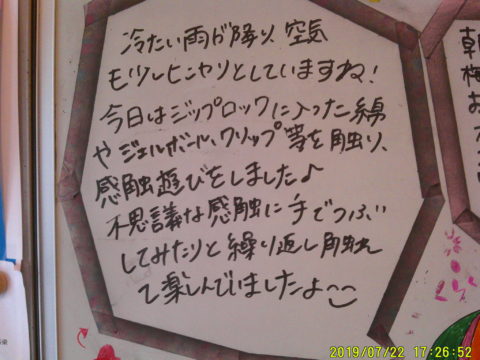 冷たい雨が降り、空気
も少しヒンヤリとしていますね!
今日はジップロックに入った綿
やジェルボール、クリップ等を触り、
感触遊びをしました♪
不思議な感触に手でつぶ
してみたりと繰り返し触れ
て楽しんでいましたよ
朝
梅
お
2019/07/22 17:26:52